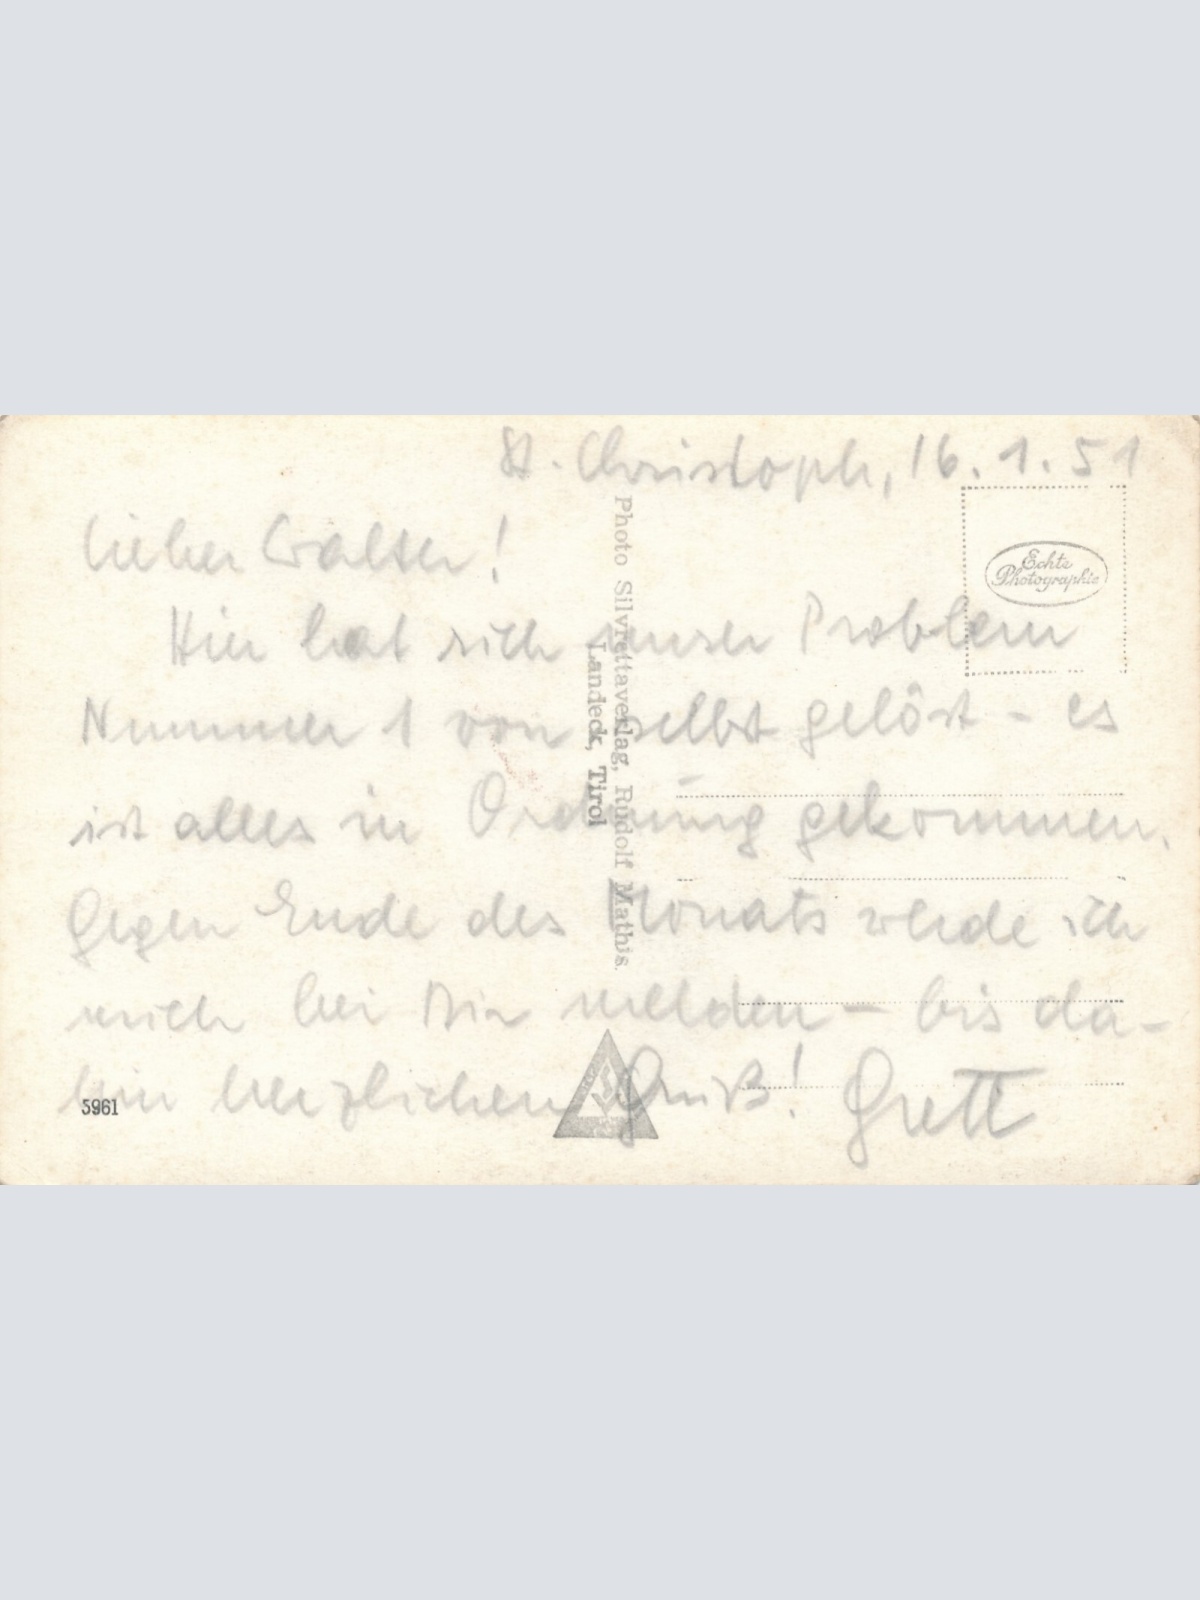 St. Christoph, 16.1.51
Lieber Walter!
Hier hat sich unser Problem
Nummer 1 von selbst gelöst - es
ist alles in Ordnung gekommen.
Gegen Ende des Monats werde ich
mich bei Dir melden - bis da-
hin herzlichen Gruß! Grett
Echte
Photographie
Photo Silvrettaverlag, Rudolf Mathis.
Landeck, Tirol
5961